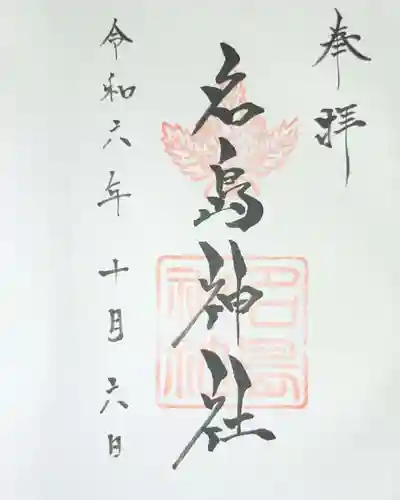 奉拝
名島神社
令和六年十月六日
名島
神社